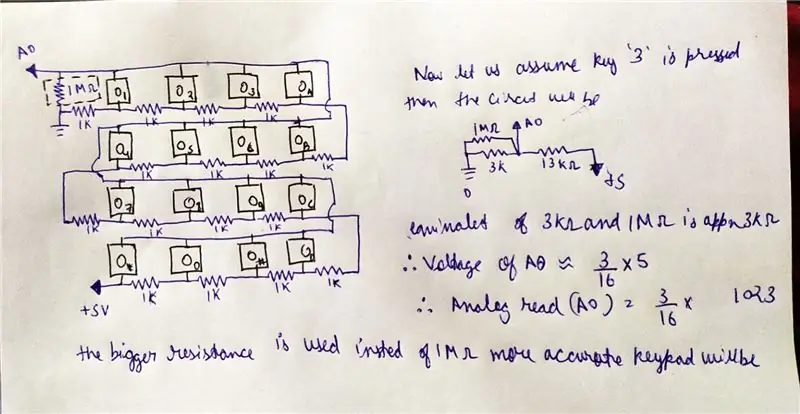 A0
1MΩ
O1 O2 O3 OA
1K 1K 1K 1K
O4 O5 O6 OB
1K 1K 1K 1K
O7 O8 O9 OC
1K 1K 1K 1K
O* O0 O# OD
1K 1K 1K 1K
+5V
Now let us assume key '3' is pressed
then the circuit will be
1MΩ
A0
3K
13KΩ
0
+5
equivalet of 3KΩ and 1MΩ is appn 3KΩ
∴ Voltage of A0 ≈ 3/16 × 5
∴ Analog read (A0) = 3/16 × 1023
the bigger resistance is used insted of 1MΩ more accurate keypad will be